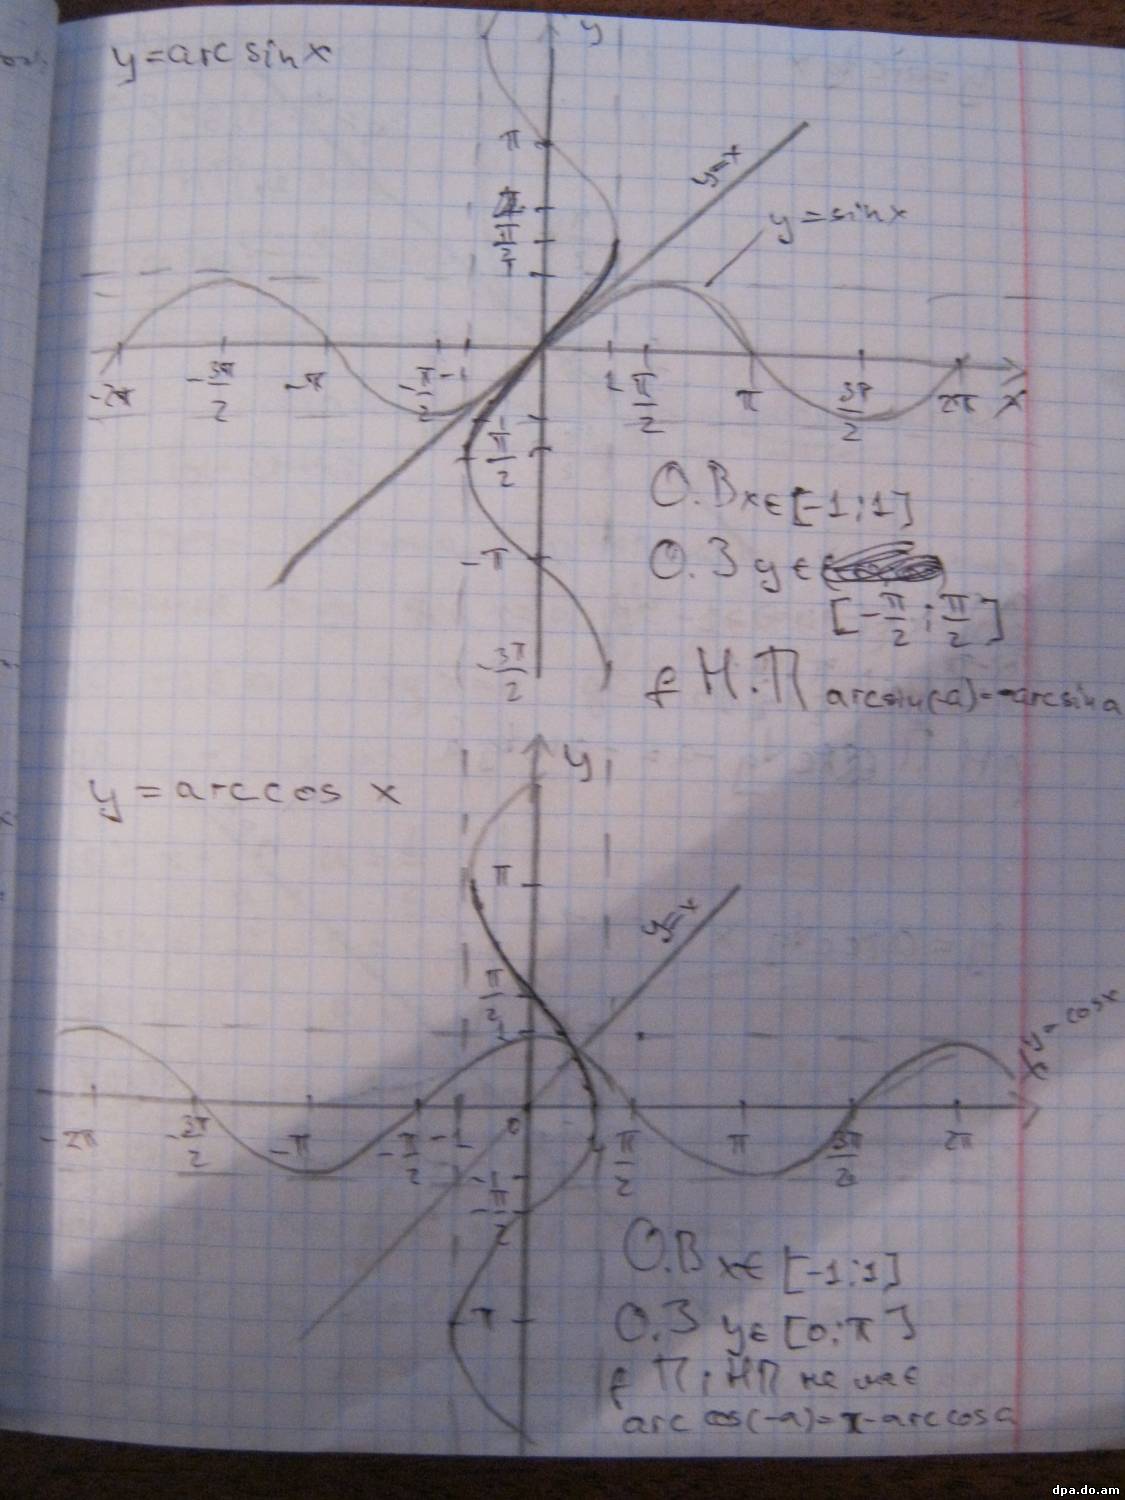 y=arcsinx
y
π
π/2
1
y=x
y=sinx
-2π
-3π/2
-π
-π/2
-1
1
π/2
π
3π/2
2π
x
-1
-π/2
-π
-3π/2
О.В x∈[-1;1]
О.З y∈
[-π/2;π/2]
f Н.П arcsin(-a)=-arcsina
y=arccos x
y
π
π/2
1
y=x
y=cosx
x
-2π
-3π/2
-π
-π/2
-1
0
π/2
π
3π/2
2π
-1
-π/2
-π
О.В x∈[-1;1]
О.З y∈[0;π]
f П i НП не має
arccos(-a)=π-arccosa
dpa.do.am